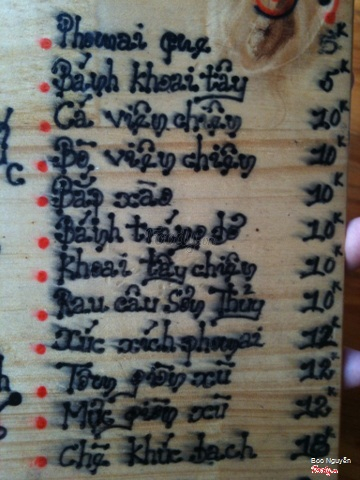 Phomai que 5K
Bánh khoai tây 5K
Cá viên chiên 10K
Bò viên chiên 10K
Bắp xào 10K
Bánh tráng bò 10K
Khoai tây chiên 10K
Rau câu Sơn Thủy 10K
Xúc xích phômai 12K
Tôm giòn xù 12K
Mực giòn xù 12K
Chả khúc bạch
Boo Nguyễn